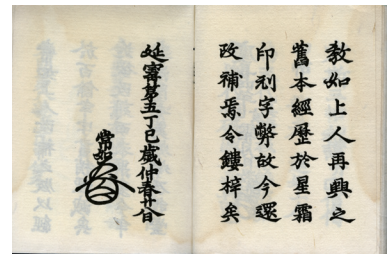 教如上人再興之
舊本經歷於星霜
印刓字弊故今還
改補焉令鏤梓矣
延寶第五丁巳歲仲春廿日
常如